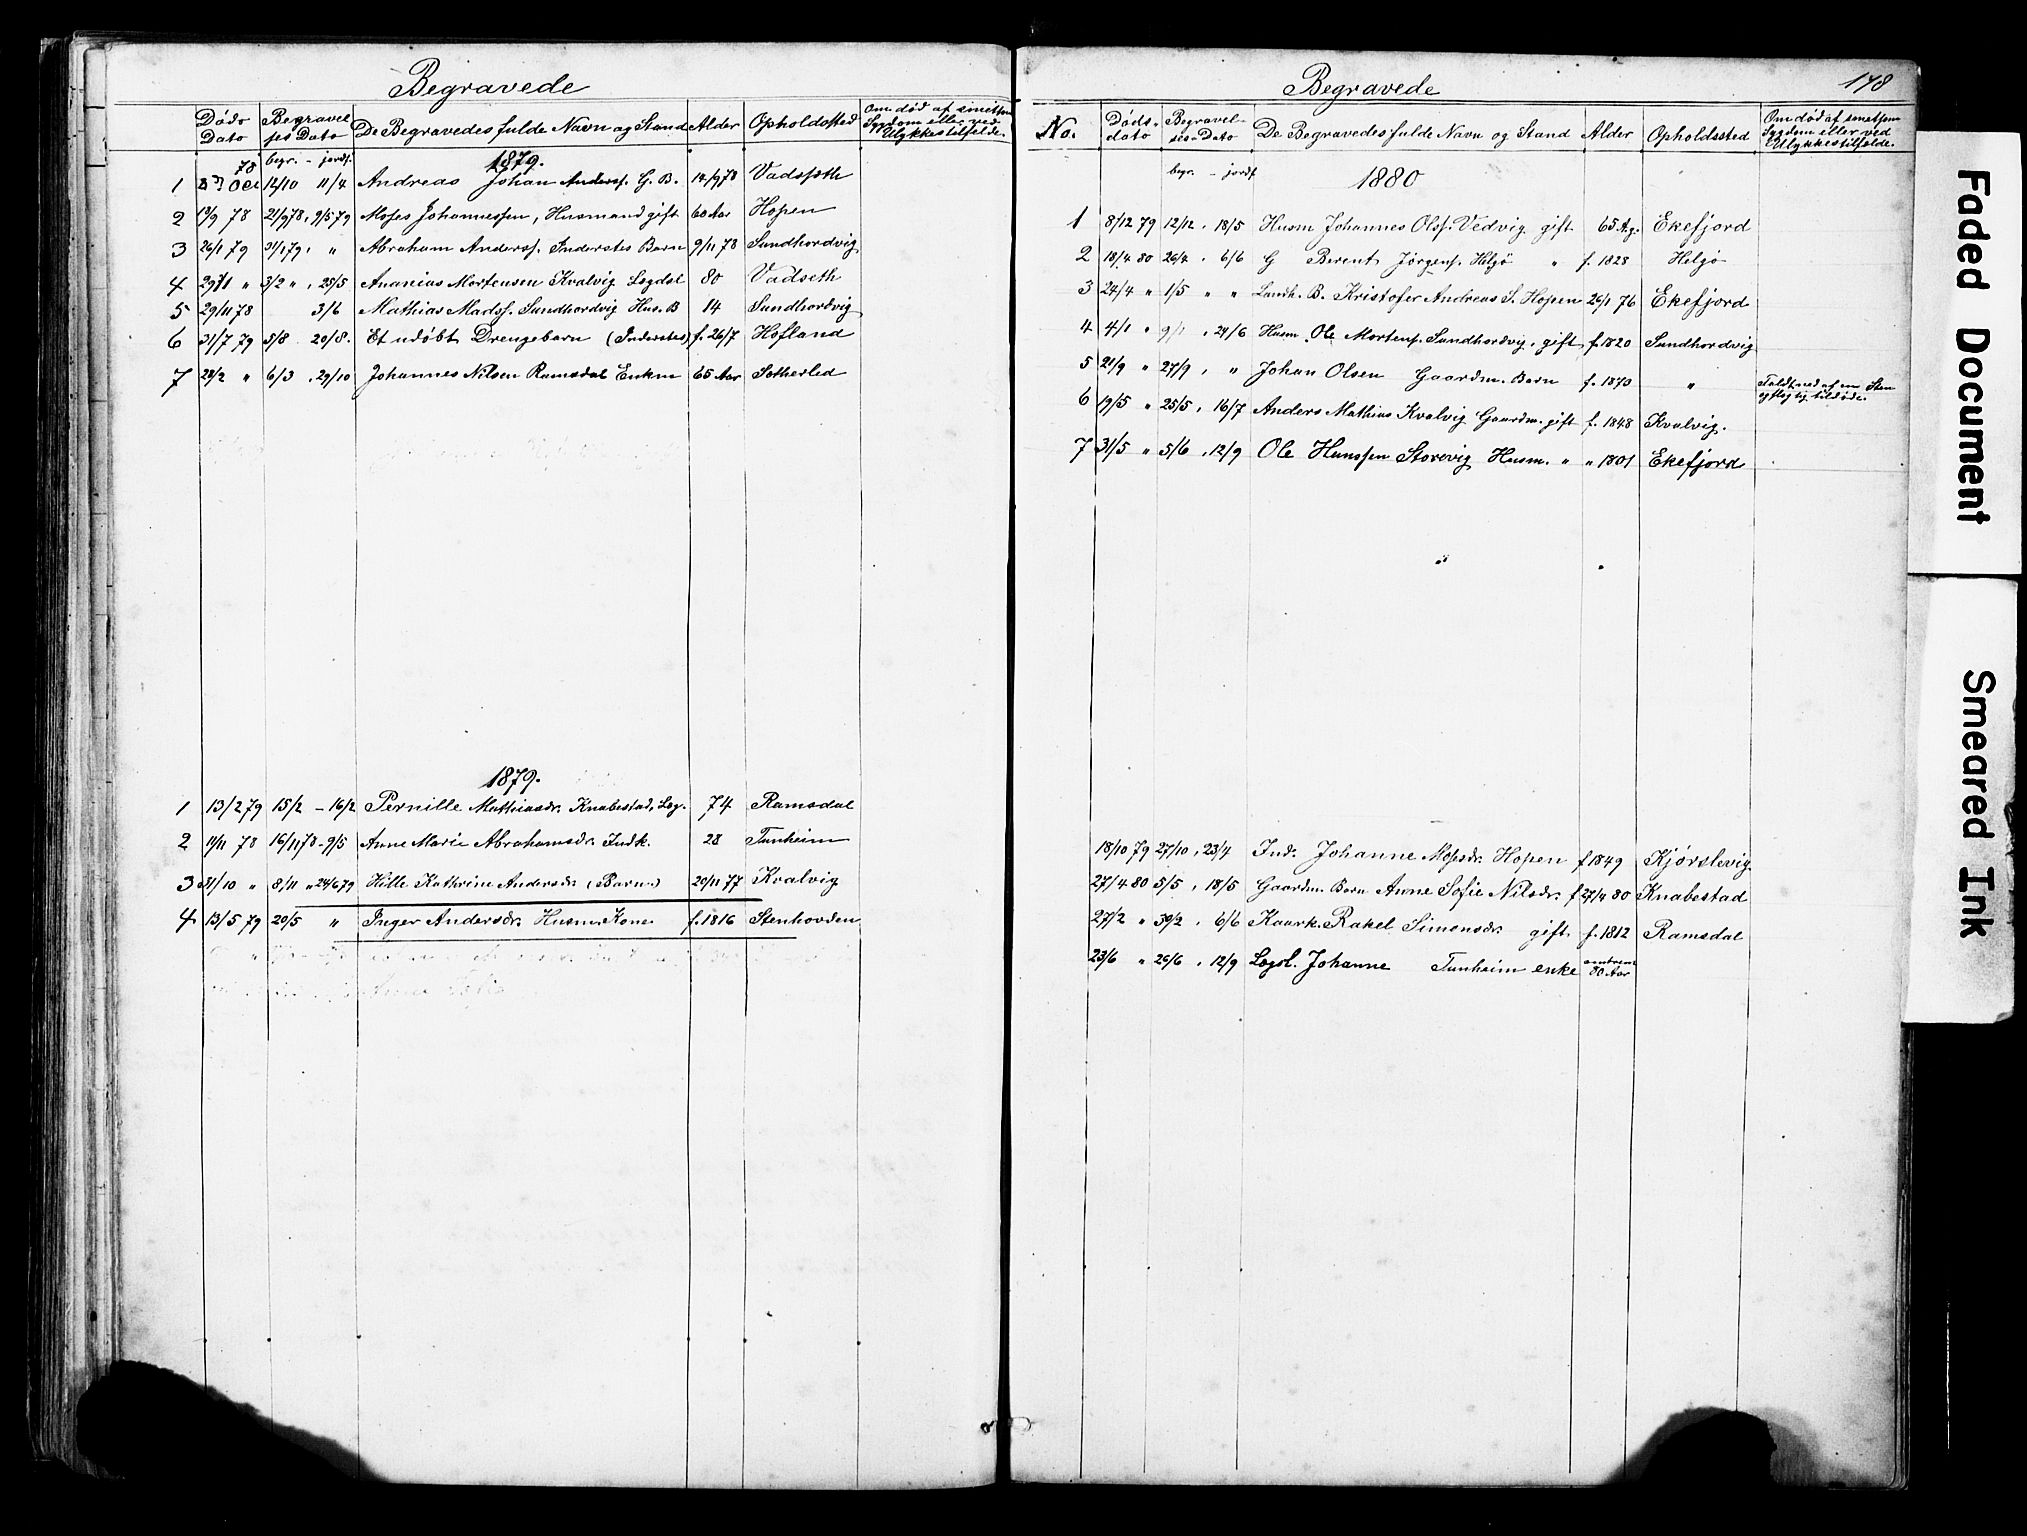 Begravede
Døds Dato | Begravelses Dato | De Begravedes fulde Navn og Stand | Alder | Opholdssted | Om død af smetsom Sygdom eller ved Ulykkestilfælde.
begr. - jordf.
1879.
1 | 78 Oct | 12/10 11/4 | Andreas Johan Andersf. G. B. | 14/9 78 | Vadsæth
2 | 13/9 78 | 21/9 78, 9/5 79 | Moses Johannessen, Husmand gift | 60 Aar | Hopen
3 | 26/1 79 | 31/1 79, " | Abraham Andersf. Inderstes Barn | 9/11 78 | Sundhordvig
4 | 29/1 " | 3/2 ", 25/5 | Ananias Mortensen Kvalvig Legdsl | 80 | Vadseth
5 | 29/11 78 | 3/6 | Mathias Madsf. Sundhordvig Hus. B | 14 | Sundhordvig
6 | 31/7 79 | 5/8 20/8. | Et udøbt Drengebarn (Inderstes) | f. 26/7 | Hofland
7 | 28/2 " | 6/3, 29/10 | Johannes Nilsen Ramsdal Enkm | 65 Aar | Sætherled
1879.
1 | 13/2 79 | 15/2 - 16/2 | Pernille Mathiasdr. Knabestad, Leg. | 74 | Ramsdal
2 | 11/11 78 | 16/11 78 - 9/5 | Anne Marie Abrahamsdr. Indk. | 28 | Tunheim
3 | 31/10 " | 8/11 " 24/6 79 | Hille Kathrine Andersdr. (Barn) | 20/11 77 | Kvalvig
4 | 13/5 79 | 20/5 " | Inger Andersdr. Husm. Kone | f. 1816 | Stenhovden
Begravede
178
No. | Døds dato | Begravelses Dato | De Begravedes fulde Navn og Stand | Alder | Opholdssted | Om død af smetsom Sygdom eller ved Ulykkestilfælde.
begr. - jordf.
1880
1 | 8/12 79 | 12/12, 18/5 | Husm Johannes Olsf. Vedvig gift | 65 Ag. | Ekefjord
2 | 18/4 80 | 26/4, 6/6 | G Berent Jørgenf. Helgø " | f. 1828 | Helgø
3 | 24/4 " | 1/5 " " | Landh. B. Kristofer Andreas S. Hopen | 26/1 76 | Ekefjord
4 | 4/1 " | 9/1, 24/6 | Husm. Ole Mortenf. Sundhordvig, gift | f. 1820 | Sundhordvig
5 | 21/9 " | 27/9, " | Johan Olsen Gaardm. Barn | f. 1873 | " | Faldt ned af en Sten og slog sig tildøde.
6 | 19/5 " | 25/5, 16/7 | Anders Mathias Kvalvig Gaardm. gift | f. 1848 | Kvalvig.
7 | 31/5 " | 5/6, 12/9 | Ole Hanssen Storevig Husm. " | " 1801 | Ekefjord
18/10 79 | 27/10, 23/4 | Ind. Johanne Mosesdr. Hopen | f 1849 | Kjørslevig
27/4 80 | 5/5, 18/5 | Gaardm. Barn Anne Sofie Nilsdr. | f 27/4 80 | Knabestad
27/2 " | 30/2, 6/6 | Kaark. Rakel Simonsdr. gift | f. 1812 | Ramsdal
23/6 " | 26/6, 12/9 | Legsl. Johanne Tunheim enke | omtrent 80 Aar
Faded Document
Smeared Ink